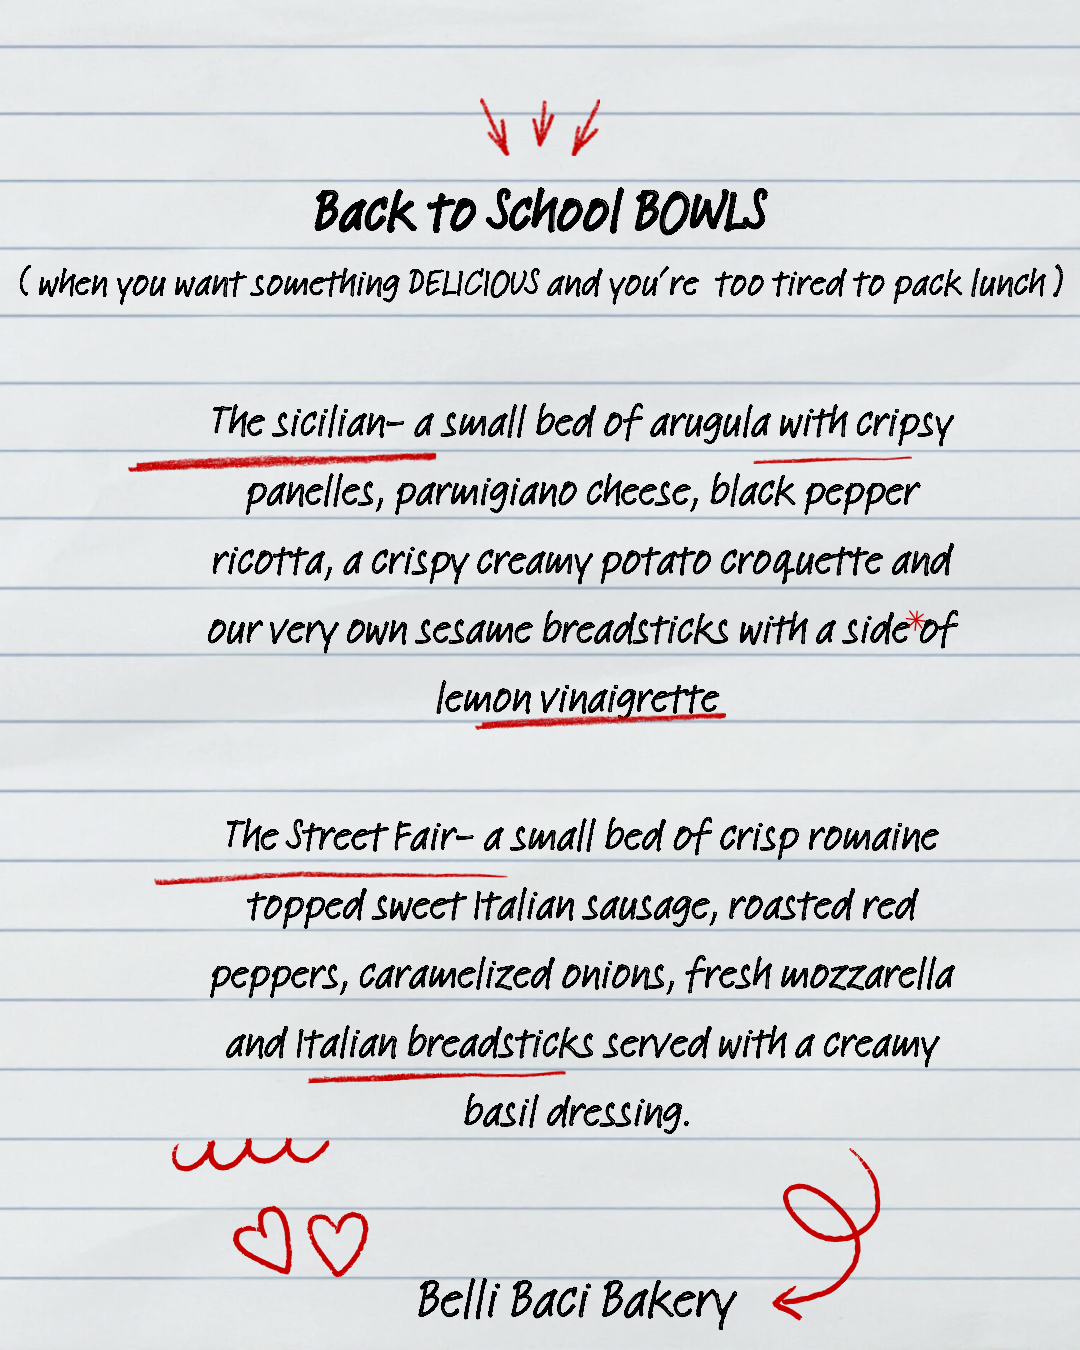 Back to School BOWLS
( when you want something DELICIOUS and you're too tired to pack lunch )
The sicilian- a small bed of arugula with cripsy
panelles, parmigiano cheese, black pepper
ricotta, a crispy creamy potato croquette and
our very own sesame breadsticks with a side*of
lemon vinaigrette
The Street Fair- a small bed of crisp romaine
topped sweet Italian sausage, roasted red
peppers, caramelized onions, fresh mozzarella
and Italian breadsticks served with a creamy
basil dressing.
Belli Baci Bakery